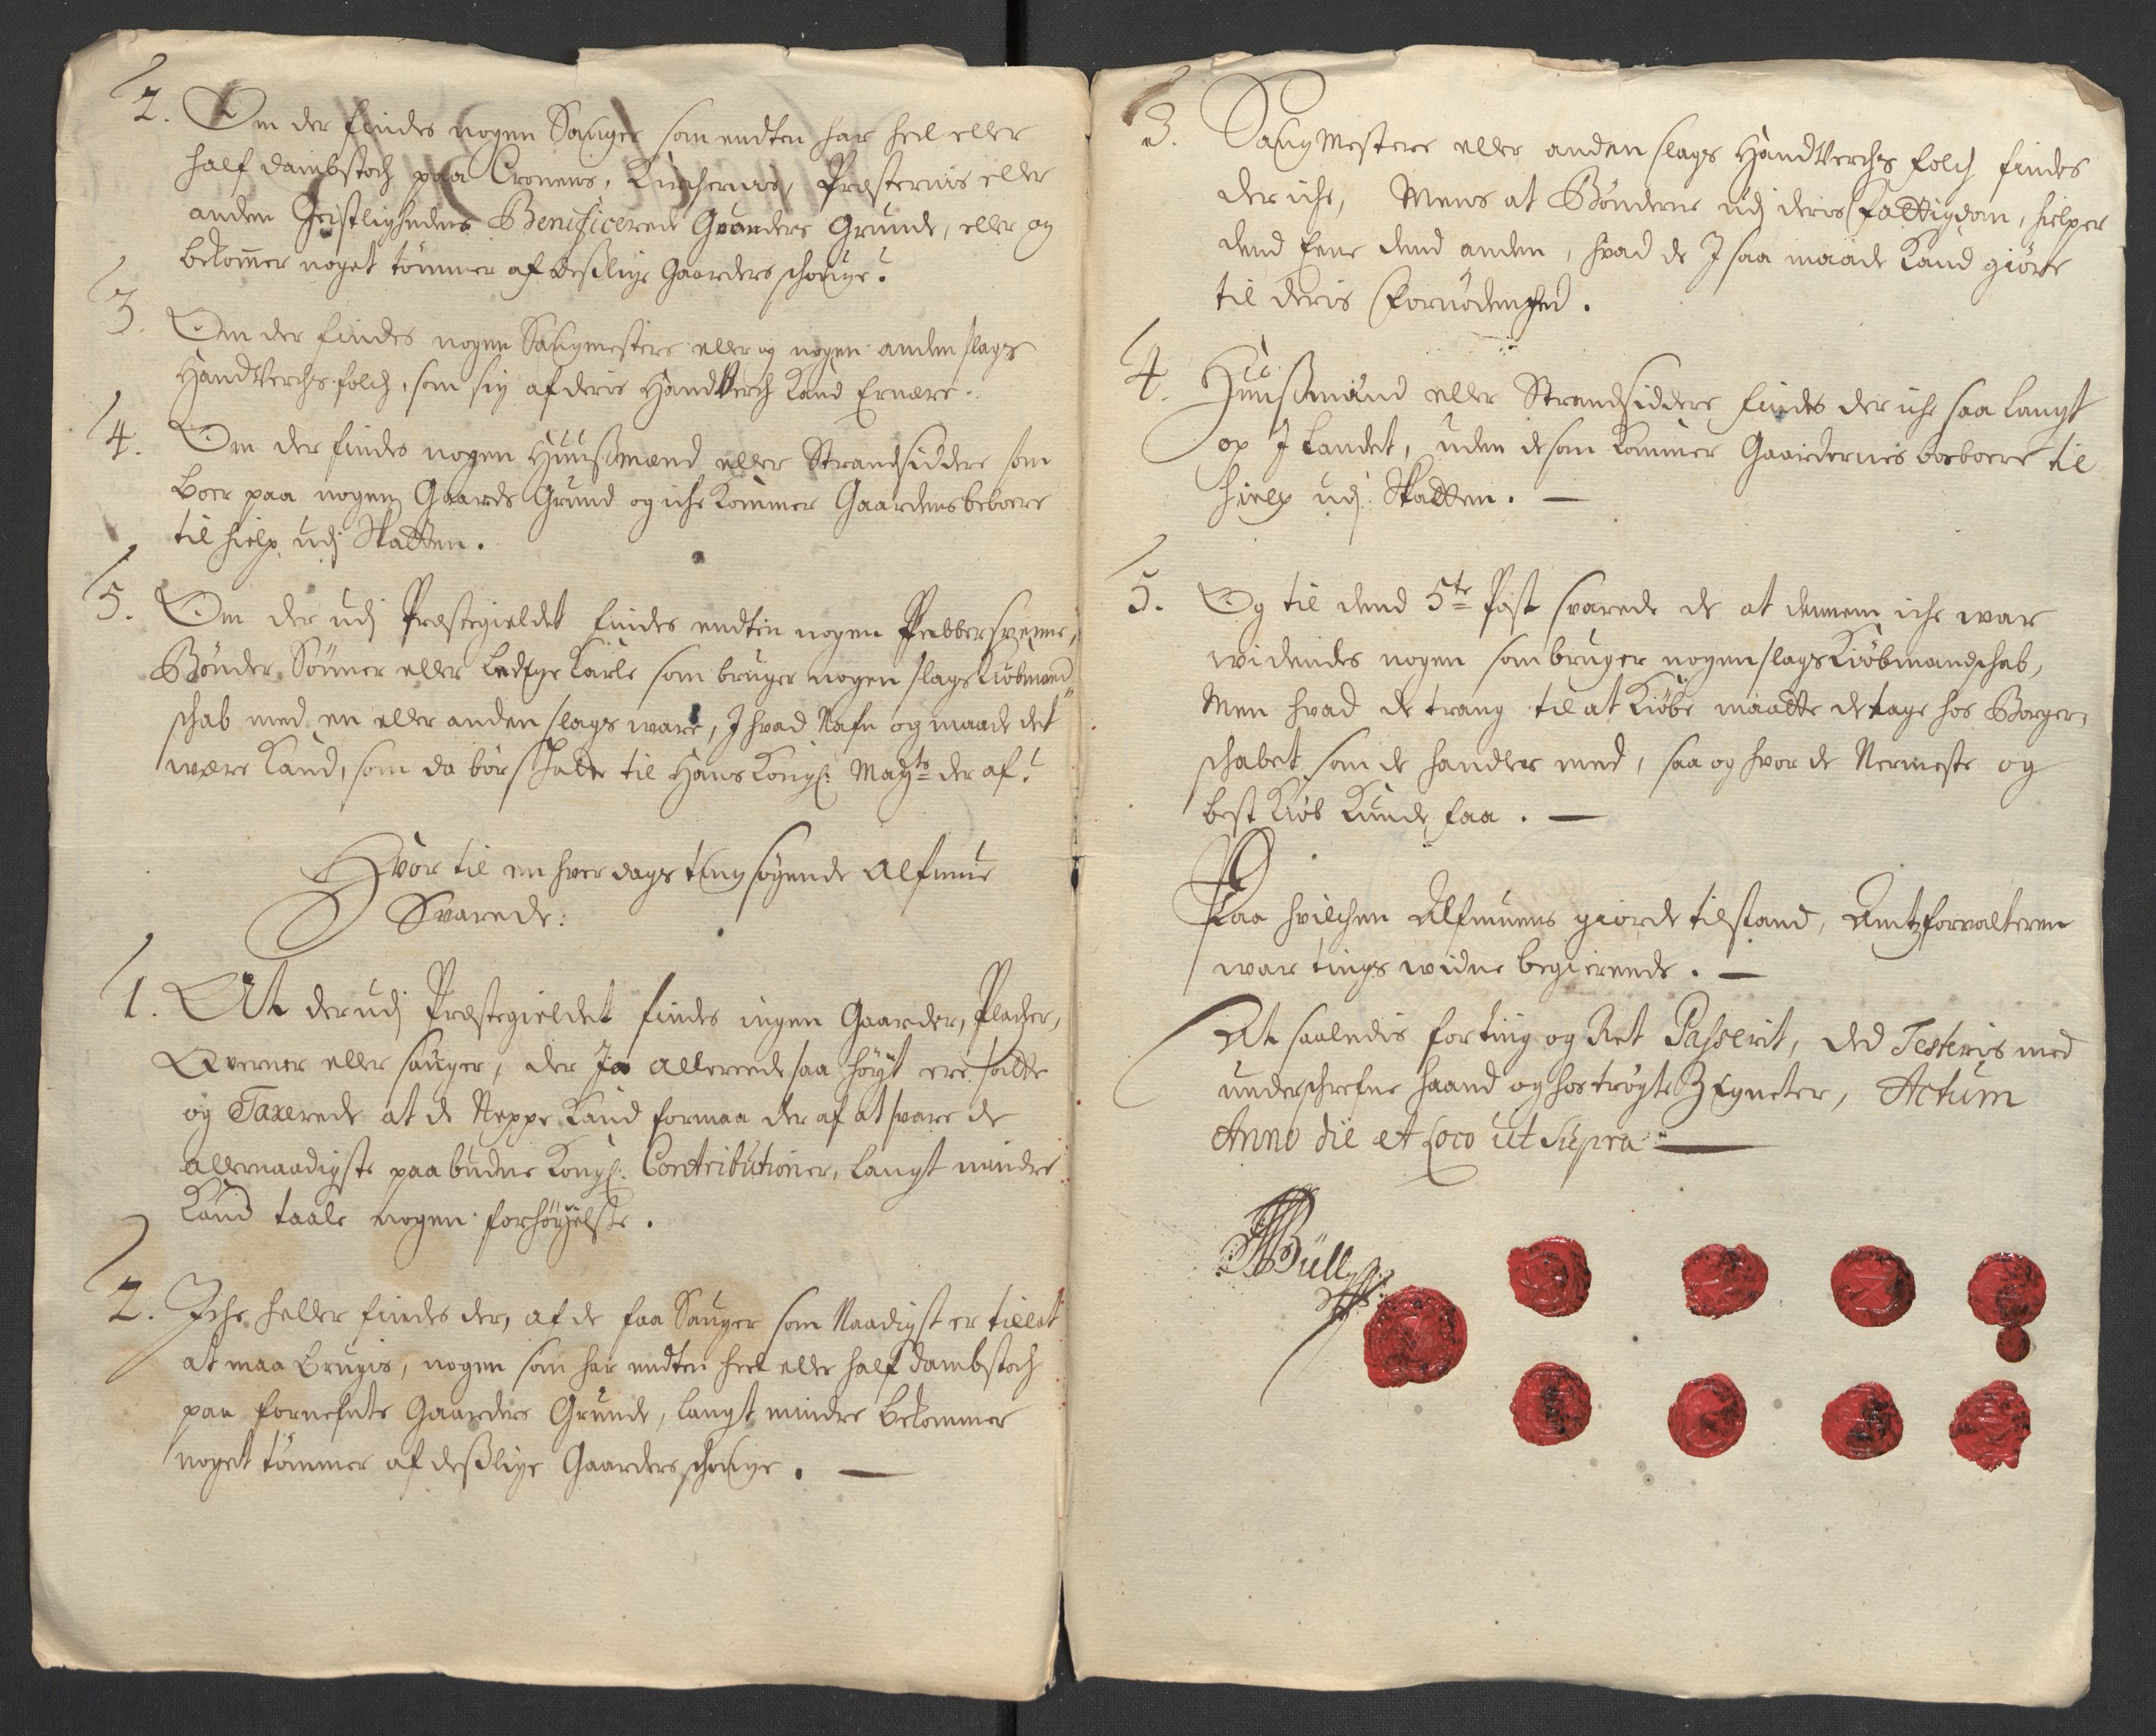 2. Om der findes nogen Sauger som endten har heel eller
half dambstoch paa Cronens, Kirchernis, Præsternis eller
anden Geistlighedens Beneficerede Gaarders Grunde, eller og
bekommer noget tømmer af deßlige Gaarders schouge?
3. Om der findes nogen Saugmestere eller og nogen anden slags
Handverchs folch, som sig af deris Handverch Kand Ernære.
4. Om der findes nogen Huußmænd eller Strandsiddere som
boer paa nogen Gaards Grund og iche kommer Gaardens beboere
til hielp udj Skatten.
5. Om der udj Præstegieldet findes endten nogen Pebbersvenne,
Bønder Sønner eller Ledige Karle som bruger nogen slags Kiøbmand
schab med en eller anden slags ware, J hvad Nafn og maade det
være Kand, som da bør schatte til Hans Kongl: Mayts der af?
Hvor til en hver dags ting søgende Alfmue
Svarede:
1. At der udj Præstegieldet findes ingen Gaarder, Pladser,
Qverner eller sauger, der Jo allereede saa høyt ere satte
og Taxerede at de Neppe Kand formaa der af at svare de
allernaadigste paabudne Kongl: Contributioner, langt mindre
Kand taale nogen forhøyelse.
2. Iche heller findes der, af de faa Sauger som Naadigst er tillat
at maa brugis, nogen som har endten heel eller half dambstoch
paa fornefnte Gaarders Grunde, langt mindre bekommer
noget tømmer af deßlige Gaarders schouge.
3. Saug Mestere eller anden slags Handverchs folch findes
der iche, Mens at Bønderne udj deris Fattigdom, hielper
dend Eene dend anden, hvad de J saa maade Kand giøre
til deris Fornødenhed.
4. Huußmænd eller Strandsiddere findes der iche saa langt
op J Landet, uden de som kommer Gaardernis beboere til
hielp udj Skatten.
5. Og til dend 5te Post svarede de at dennem iche war
widendes nogen som bruger nogen slags Kiøbmandschab,
Men hvad de trang til at Kiøbe maatte de tage hos Borger-
schabet som de handler med, saa og hvor de Nermeste og
best Kiøb Kunde faa.
Paa hvilchen Alfmuens giorde tilstand, Amtzforvalteren
war tings widne begierende.
At saaledis for ting og Ret Passerit, Ded Testeris med
underschrefne haand og hostrøgte Zigneter, Actum
Anno die et Loco ut Supra
Büll